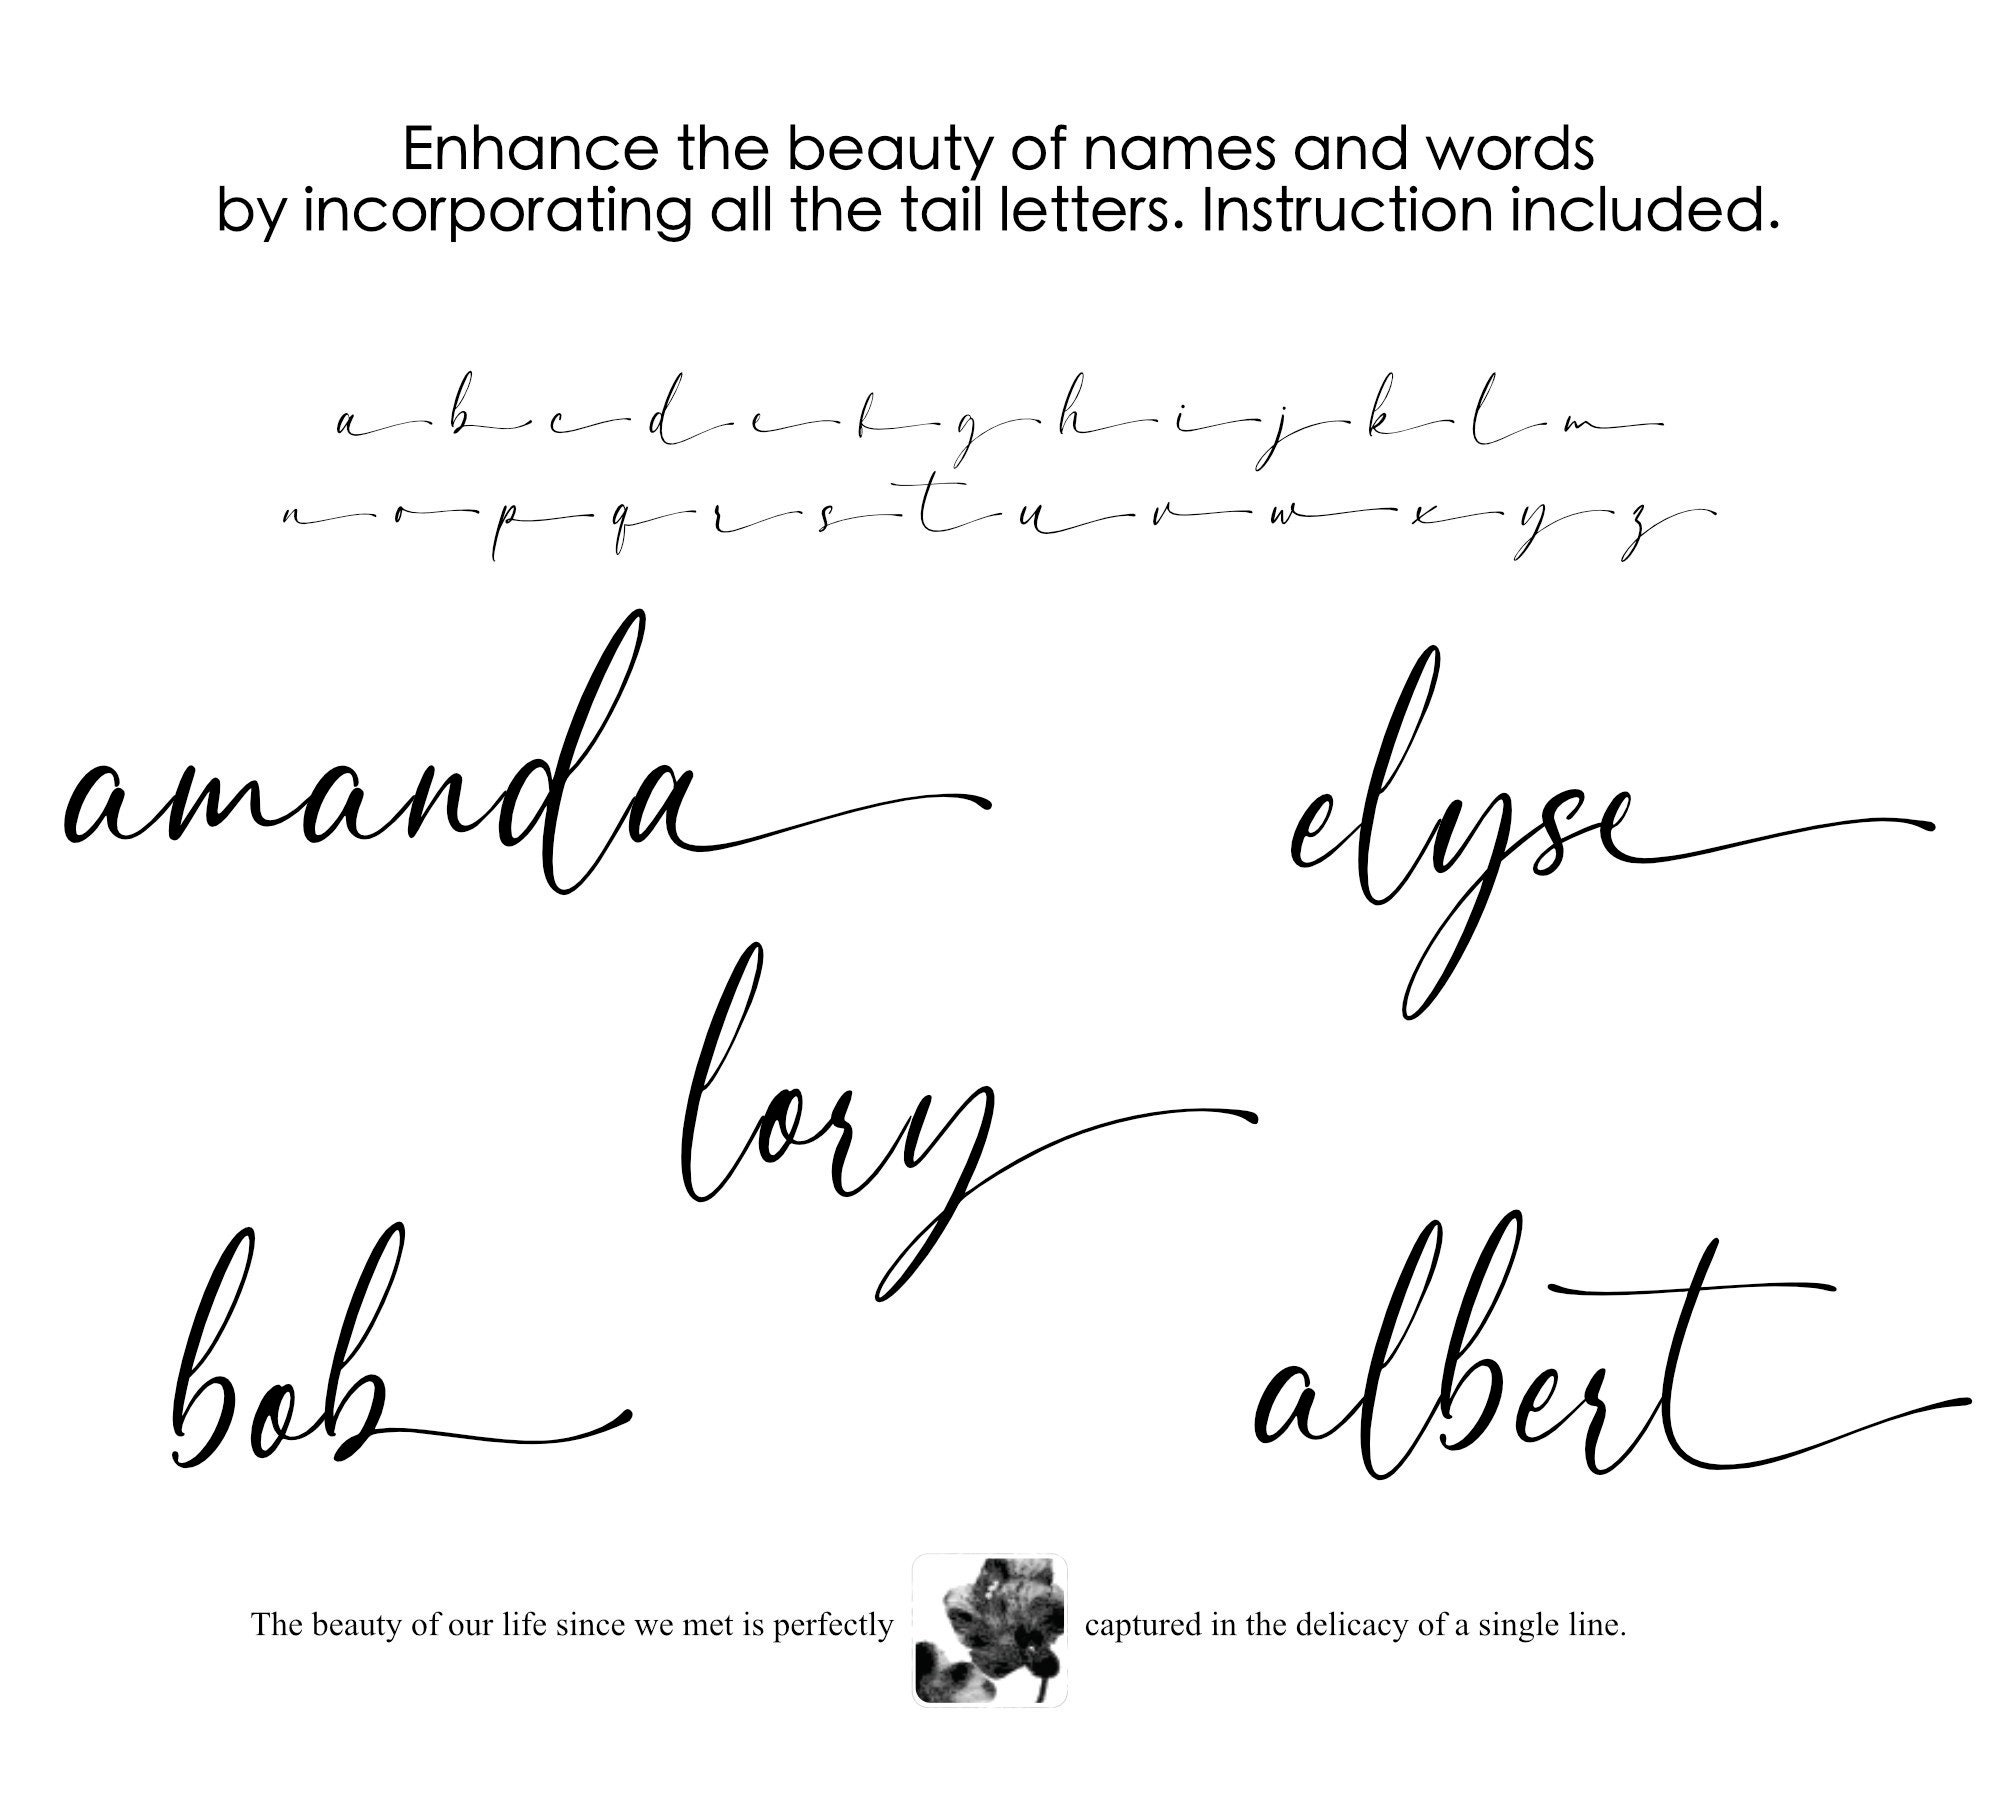 Enhance the beauty of names and words
by incorporating all the tail letters. Instruction included.
a b c d e f g h i j k l m
n o p q r s t u v w x y z
amanda
elyse
lory
bob
albert
The beauty of our life since we met is perfectly captured in the delicacy of a single line.